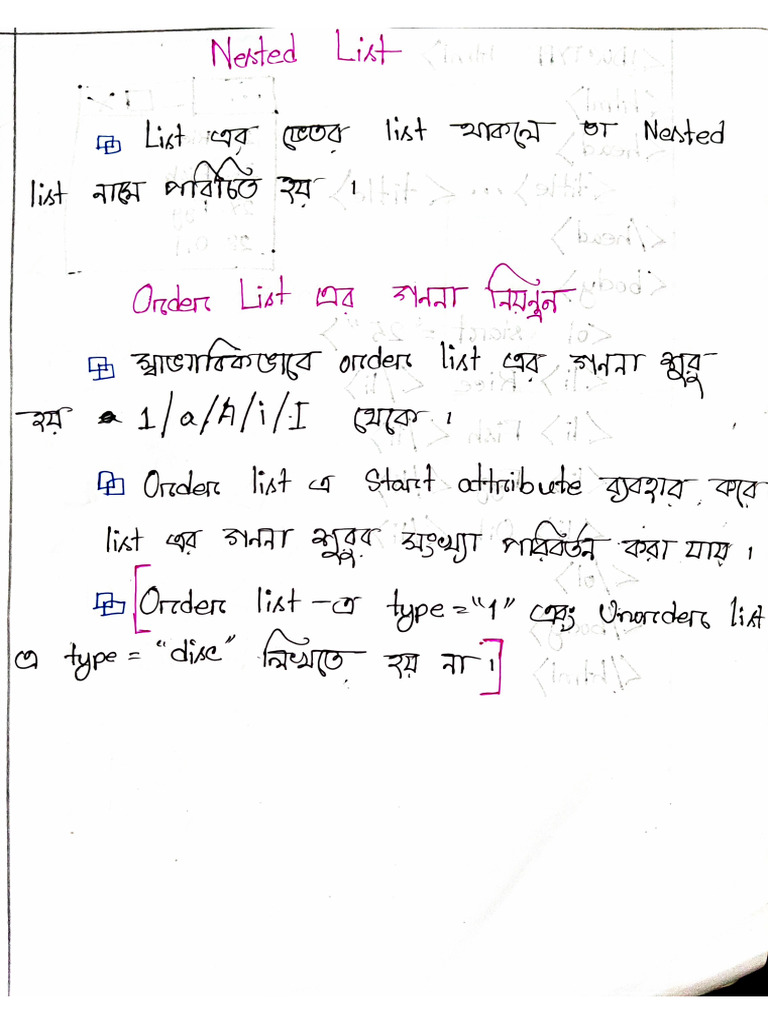 Nested List
List এর ভেতর list থাকলে তা Nested
list নামে পরিচিত হয় ।
Order List এর গননা নিয়ন্ত্রন
স্বাভাবিকভাবে order list এর গননা শুরু
হয় 1/a/A/i/I থেকে ।
Order list এ Start attribute ব্যবহার করে
list এর গননা শুরুর সংখ্যা পরিবর্তন করা যায় ।
[Order list-এ type="1" এবং Unorder list
এ type = "disc" লিখতে হয় না ।]